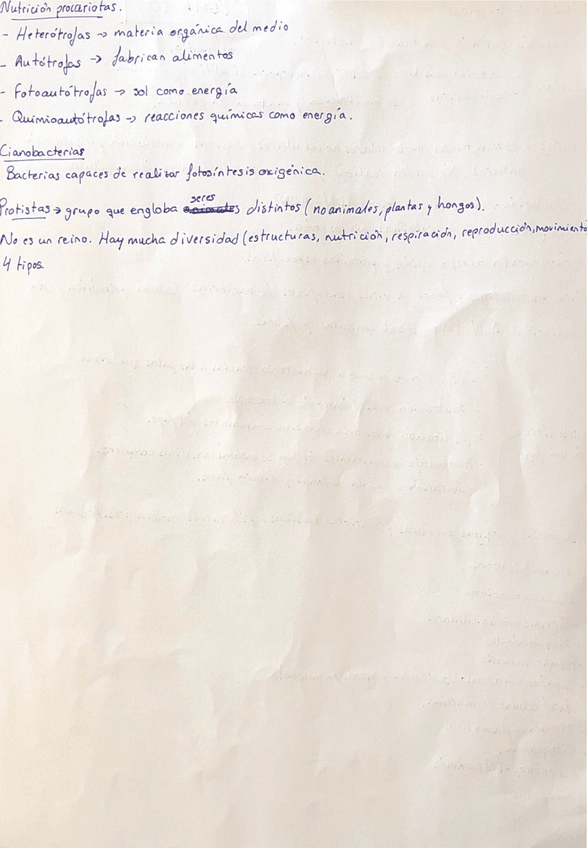 Nutrición procariotas.
- Heterótrofas -> materia orgánica del medio
- Autótrofas -> fabrican alimentos
- Fotoautótrofas -> sol como energía
- Quimioautótrofas -> reacciones químicas como energía.
Cianobacterias
Bacterias capaces de realizar fotosíntesis oxigénica.
Protistas -> grupo que engloba seres distintos (no animales, plantas y hongos).
No es un reino. Hay mucha diversidad (estructuras, nutrición, respiración, reproducción, movimiento
4 tipos.